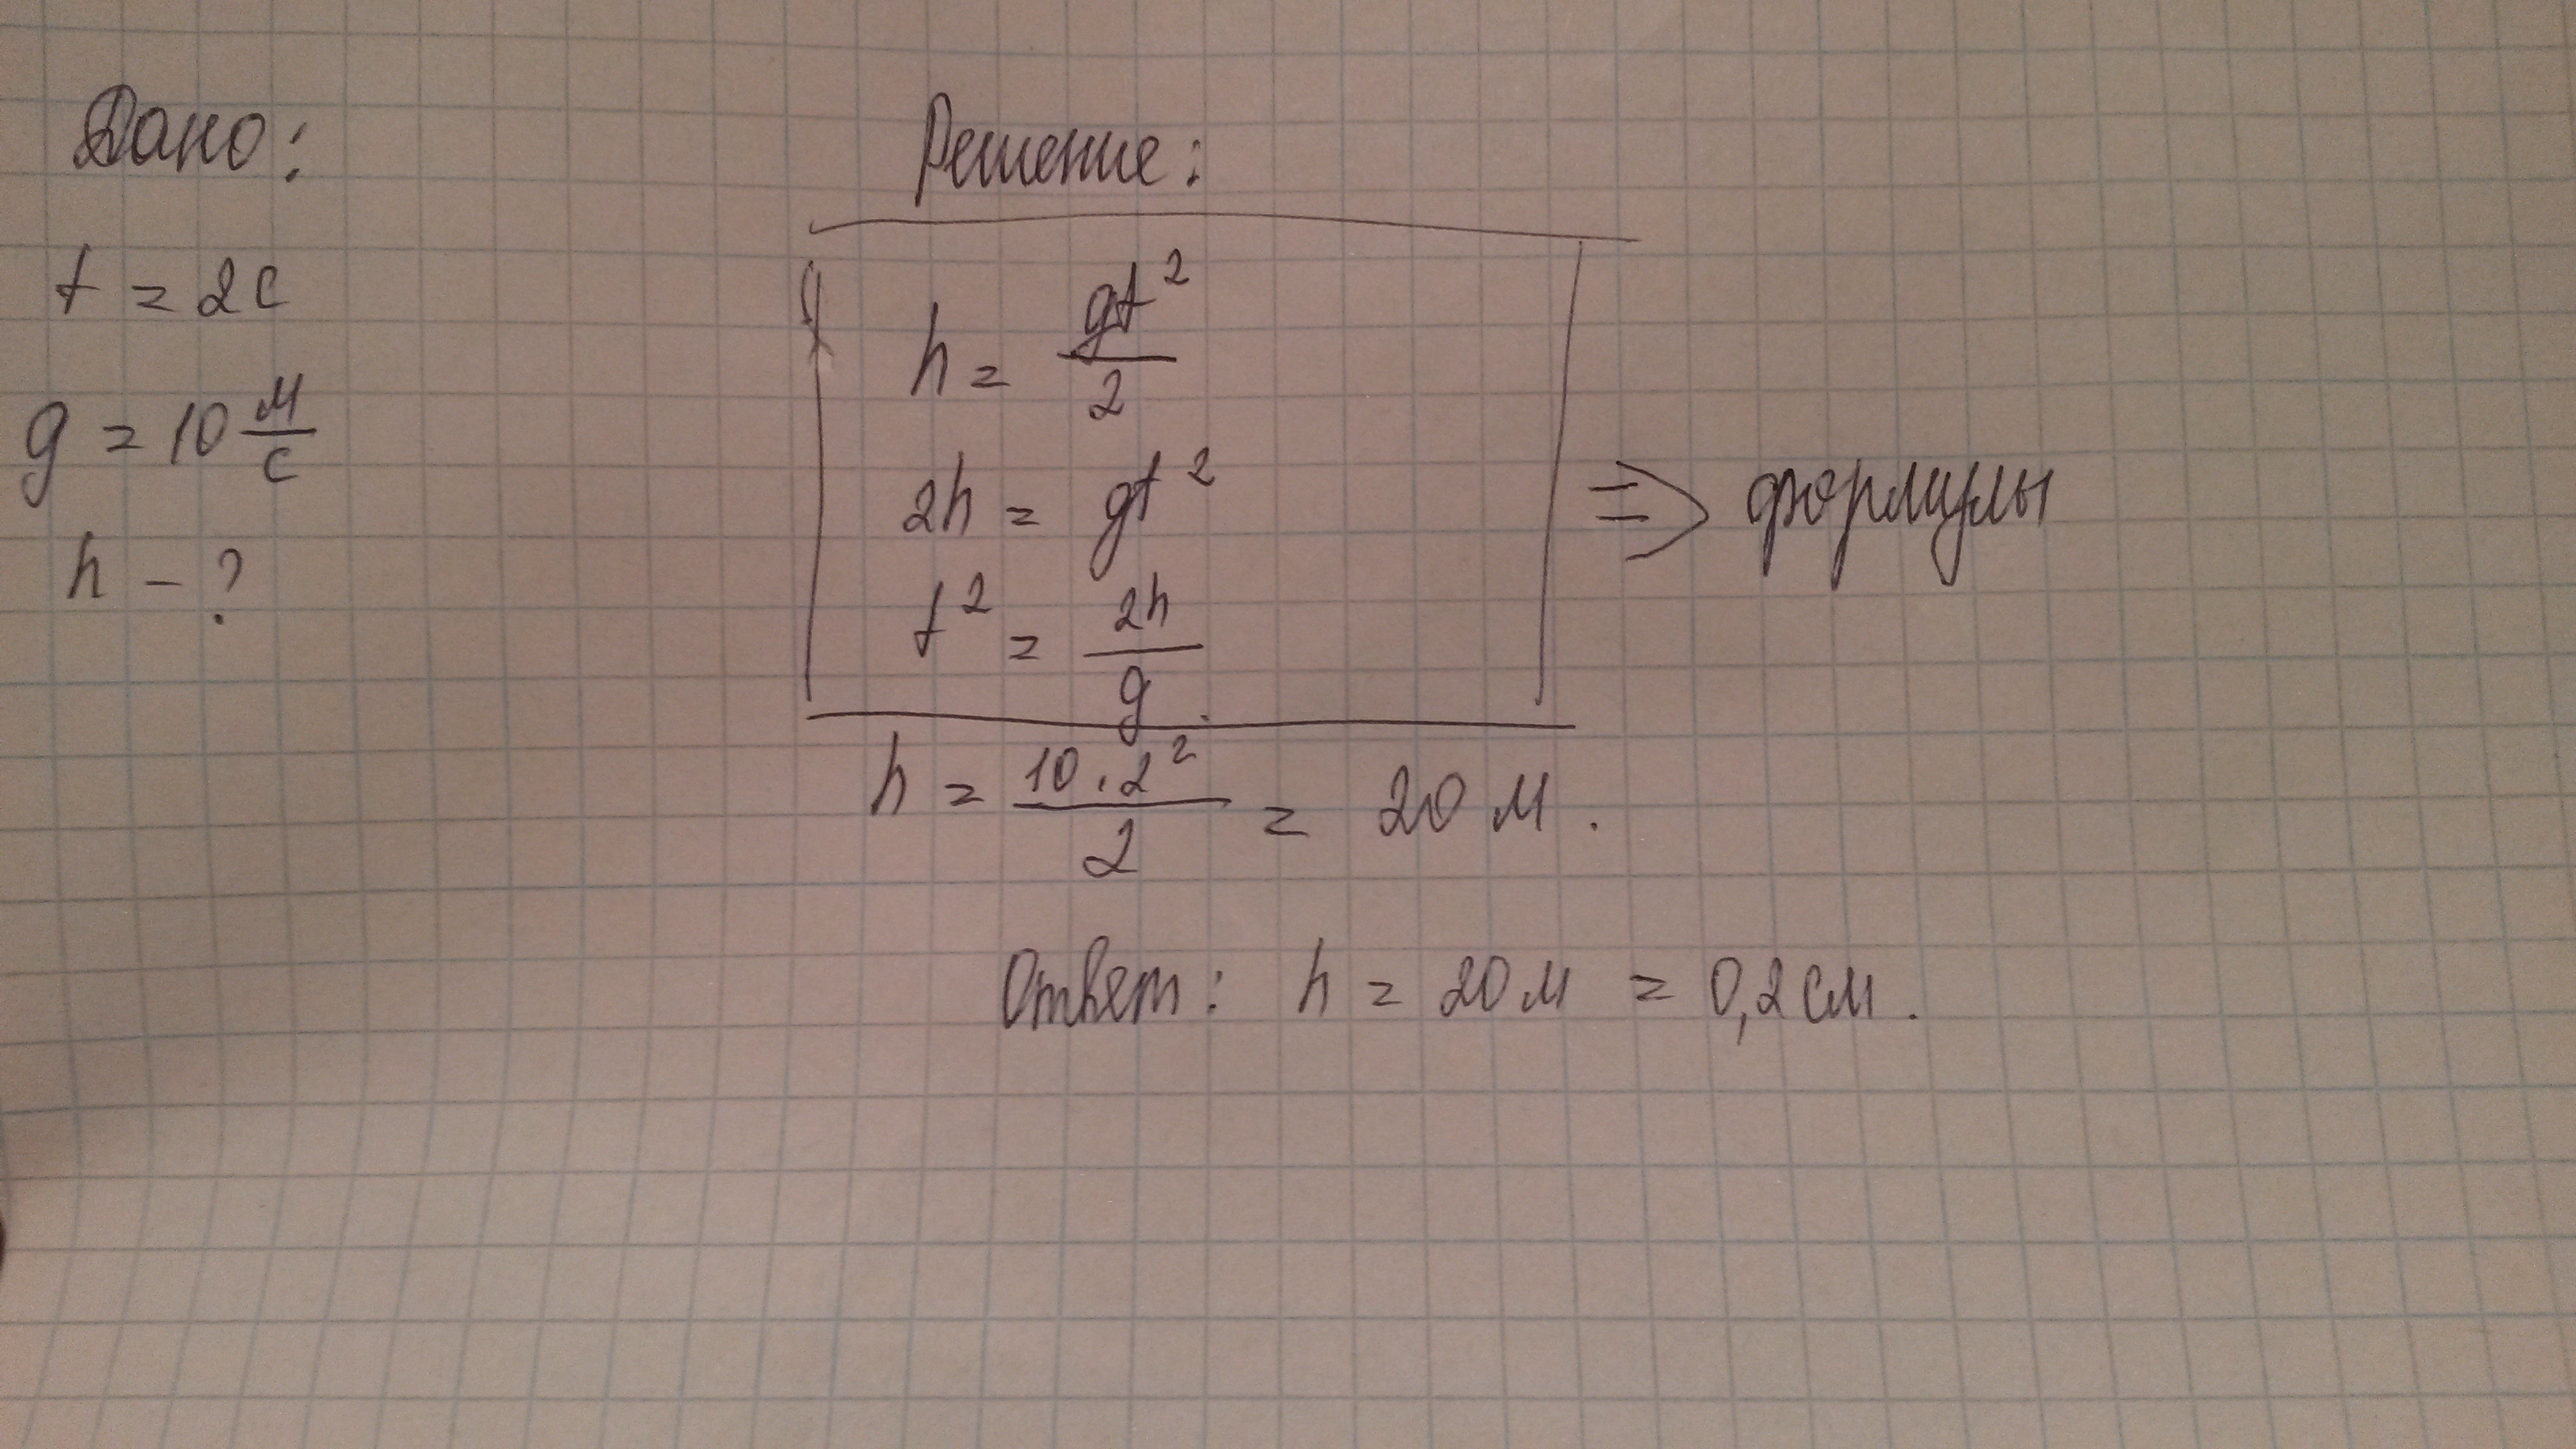 Дано:
t = 2с
g = 10 м/с
h - ?
Решение:
h = gt²/2
2h = gt²
t² = 2h/g
=> формулы
h = 10·2²/2 = 20 м.
Ответ: h = 20м = 0,2см.